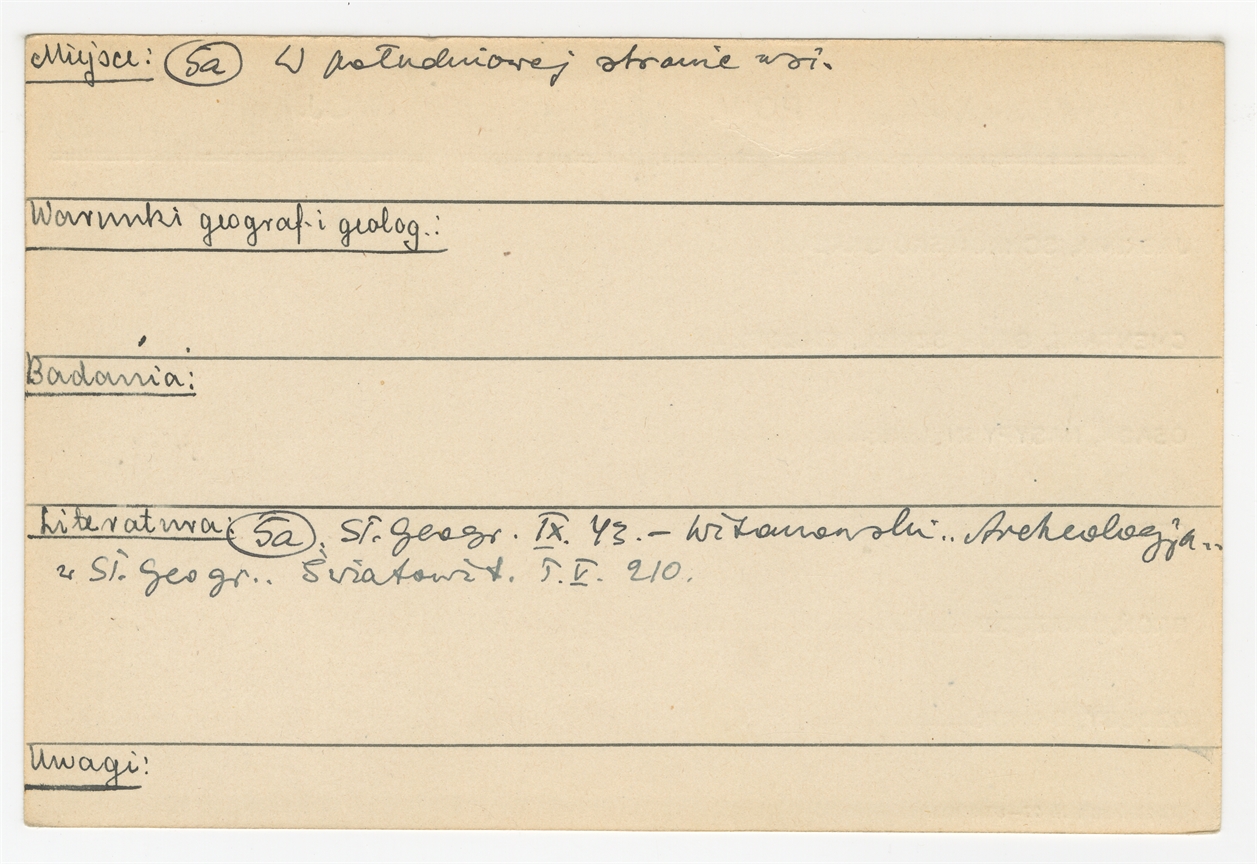 Miejsce: 5a W południowej stronie wsi.
Warunki geograf. i geolog.:
Badania:
Literatura: 5a. Sł. Geogr. IX. 43. – Witanowski.. Archeologija..
w Sł. Geogr.. Światowit. T. V. 210.
Uwagi: